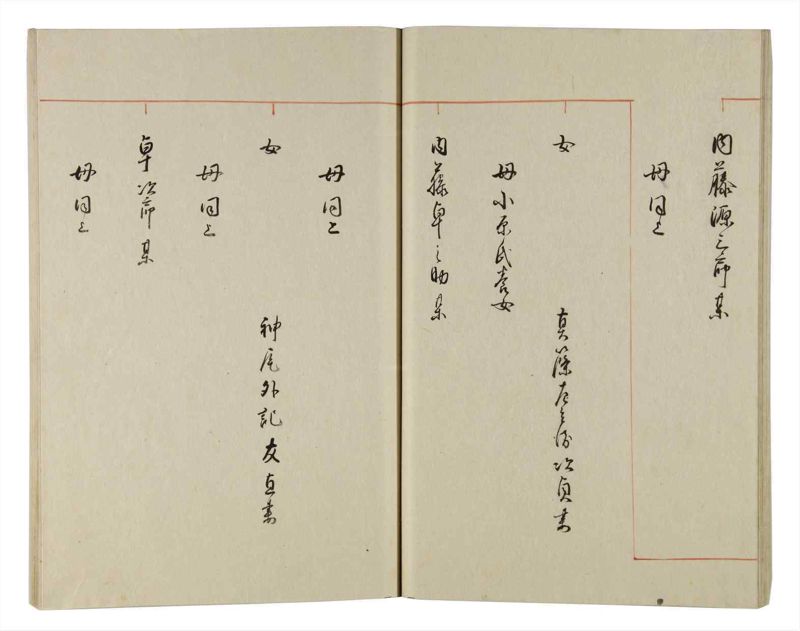 内藤源三郎某
母同上
女
真篠左之衛次貞妻
母小原氏養女
内藤卓之助某
母同上
女
神尾外記友直妻
母同上
卓次郎某
母同上